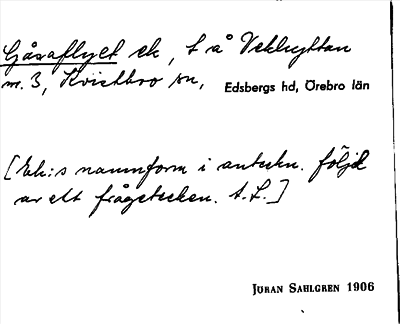 Gåsaflyet ek, t å Vekhyttan
m. 3, Kvistbro sn, Edsbergs hd, Örebro län
[Ek:s namnform i anteckn. följd
av ett frågetecken. A.L.]
JÖRAN SAHLGREN 1906